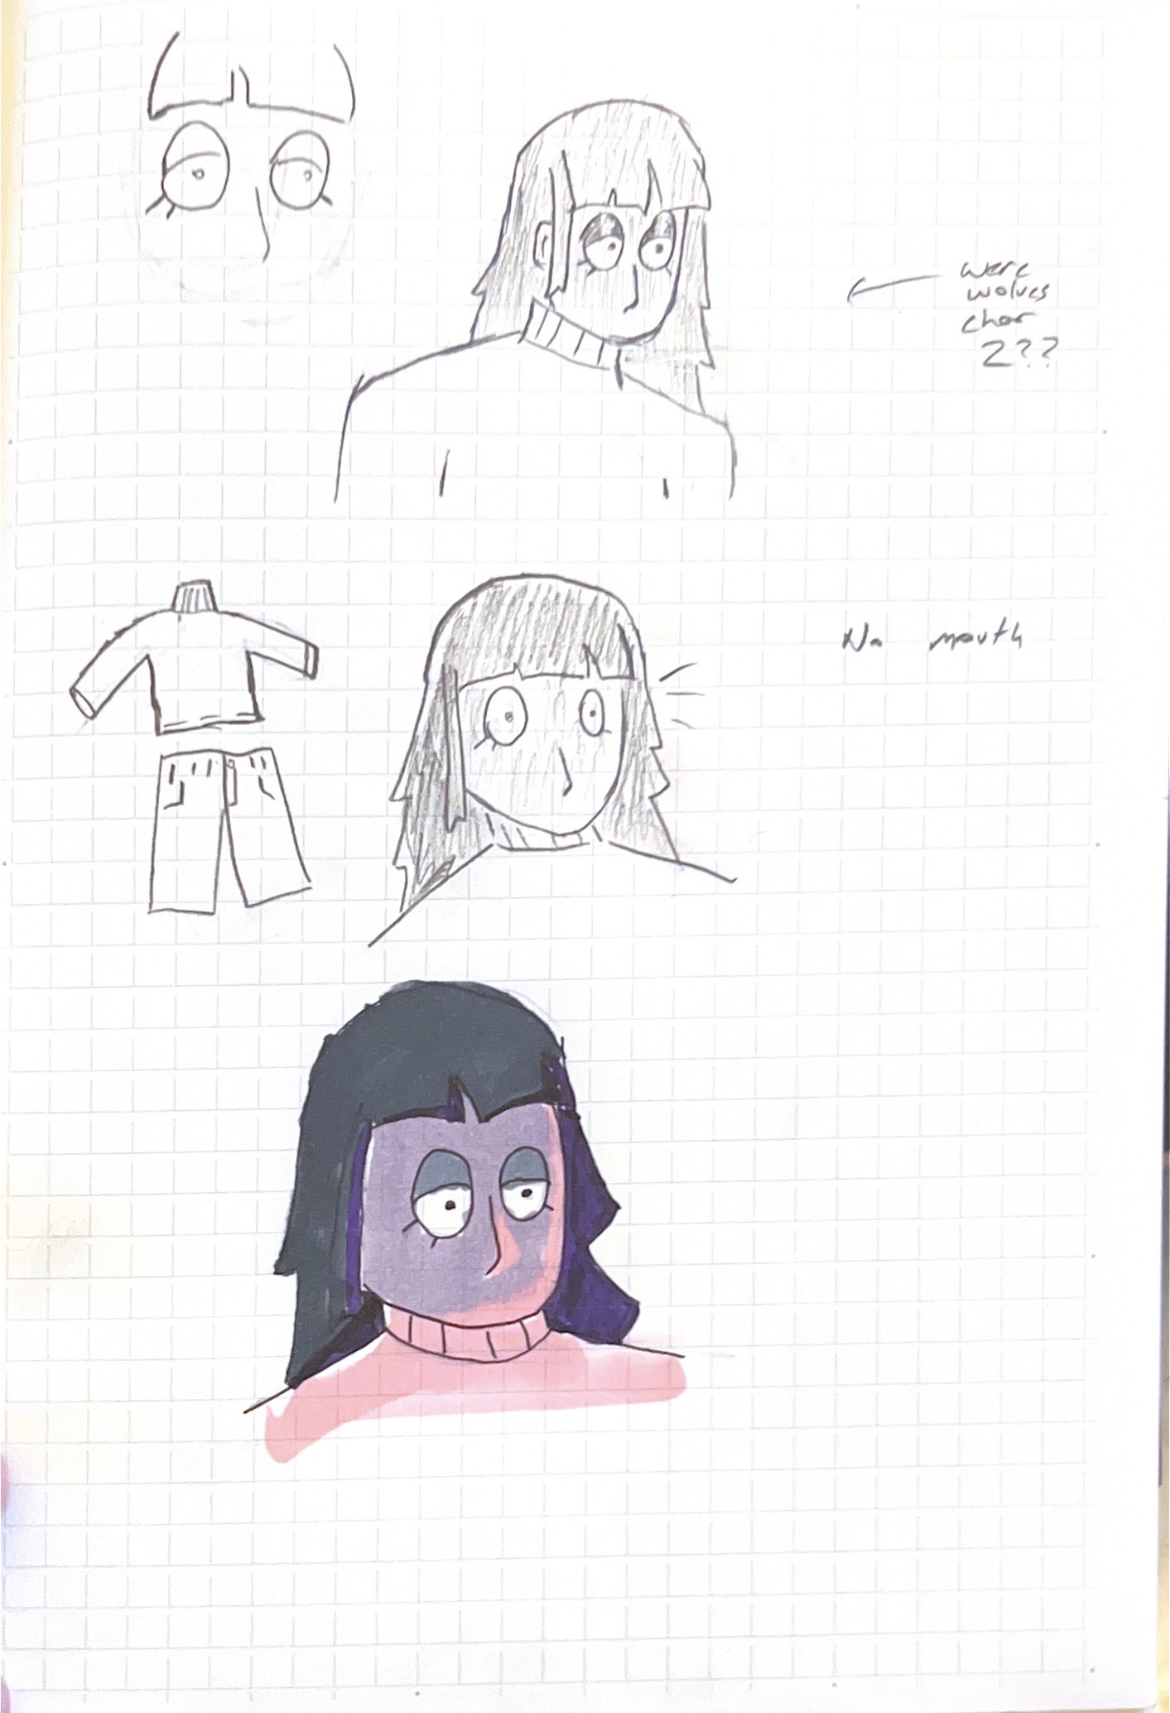 were
wolves
char
2??
No mouth